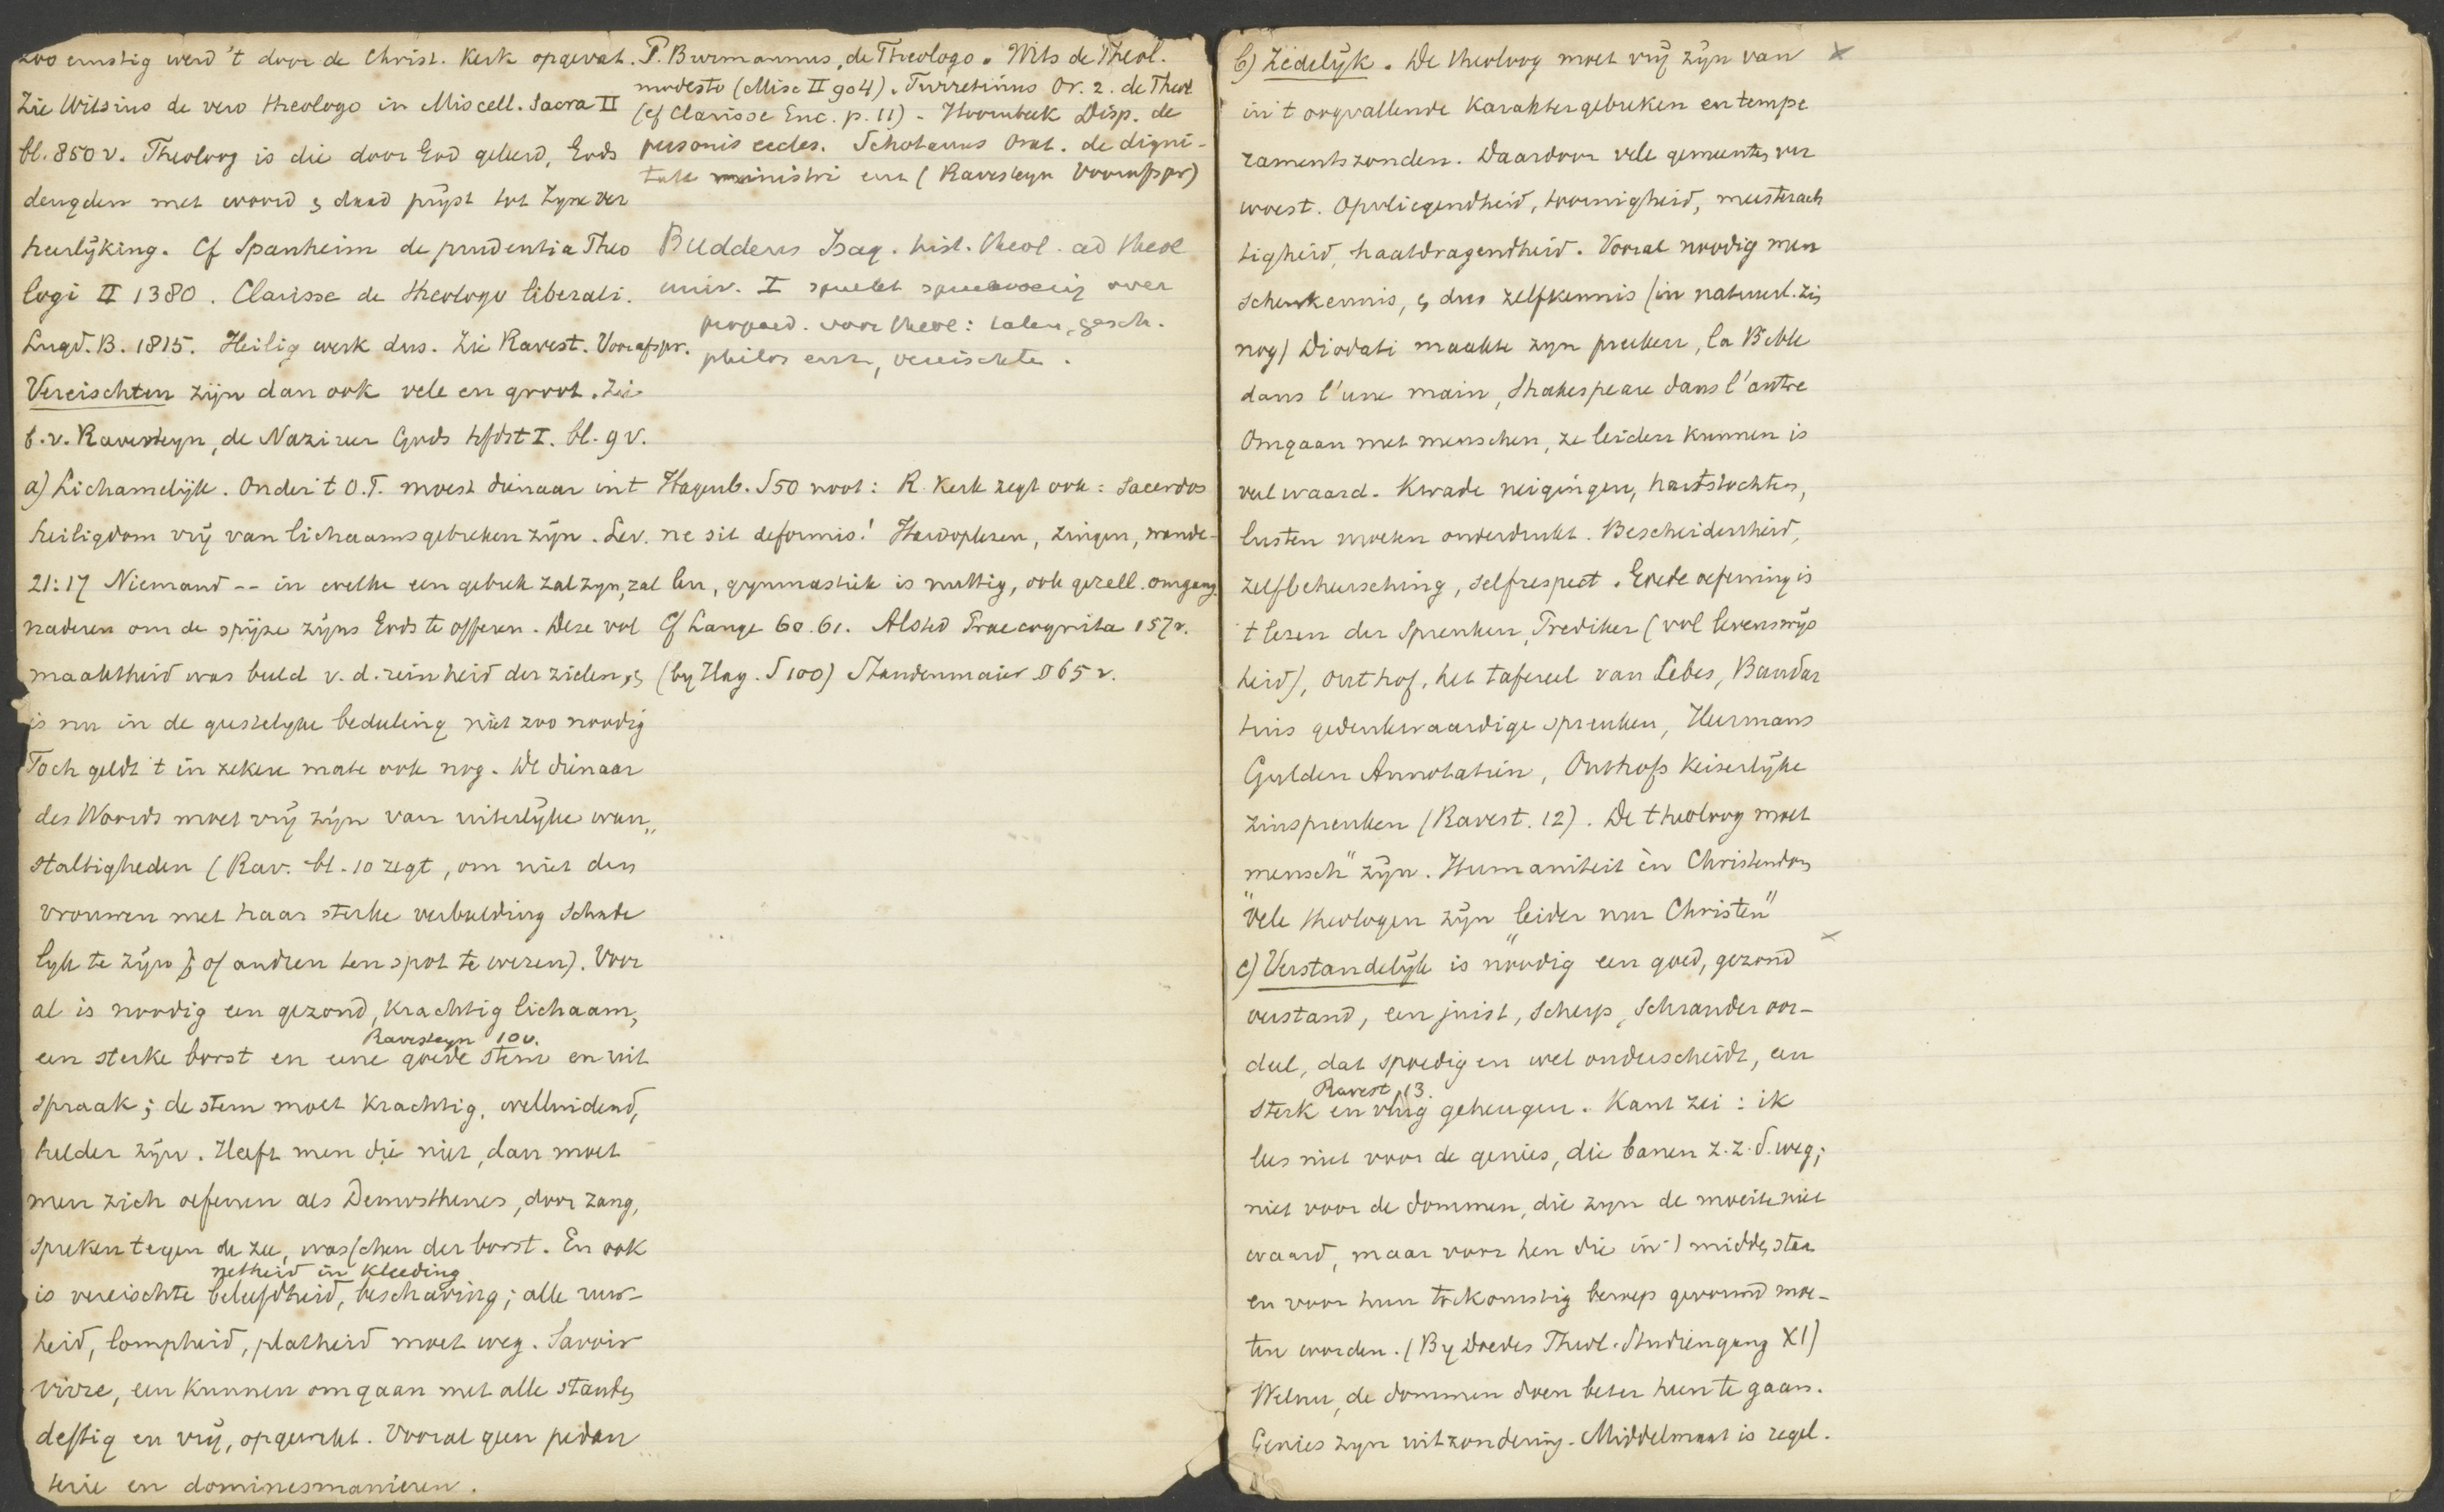 zoo ernstig werd 't door de Christ. Kerk opgevat.
Zie Witsius de vero theologo in Miscell. Sacra II
bl. 850 v. Theoloog is die door God geleerd, Gods
deugden met woord & daad prijst tot Zyne ver
heerlijking. Cf Spanheim de prudentia Theo
logi II 1380. Clarisse de theologo liberali.
Lugd. B. 1815. Heilig werk dus. Zie Ravest. Voorafspr.
Vereischten zijn dan ook vele en groot. Zie
b.v. Ravesteyn, de Nazireer Gods hfdst I. bl. 9 v.
a) Lichamelijk. Onder 't O.T. moest dienaar in 't
heiligdom vrij van lichaamsgebreken zijn. Lev.
21:17 Niemand -- in welke een gebrek zal zyn, zal
naderen om de spijze zijns Gods te offeren. Deze vol
maaktheid was beeld v. d. reinheid der zielen, &
is nu in de geestelyke bedeeling niet zoo noodig
Toch geldt 't in zekere mate ook nog. De dienaar
des Woords moet vrij zijn van uiterlyke wan„
staltigheden (Rav. bl. 10 zegt, om niet den
vrouwen met haar sterke verbeelding schade
lyk te zijn of andren ten spot te wezen). Voor
al is noodig een gezond, krachtig lichaam,
Ravesteyn 10 v.
een sterke borst en eene goede stem en uit
spraak; de stem moet krachtig, welluidend,
helder zijn. Heeft men die niet, dan moet
men zich oefenen als Demosthenes, door zang,
spreken tegen de zee, wasschen der borst. En ook
netheid in kleeding
is vereischte beleefdheid, beschaving; alle ruw-
heid, lompheid, platheid moet weg. Savoir
vivre, een kunnen omgaan met alle standen
deftig en vrij, opgewekt. Vooral geen pedan
terie en dominesmanieren.
P. Burmannus, de Theologo. Wits de Theol.
modesto (Misc II 904). Turretinus Or. 2. de Theol
(cf Clarisse Enc. p. 11) - Hoornbeek Disp. de
personis eccles. Schotanus Orat. de digni-
tate ministri enz (Ravesteyn Voorafspr)
Buddeus Isag. hist. theol. ad theol
univ. I spreekt over
propaed. voor theol: talen, gesch.
philos enz, vereischte.
Hagenb. § 50 noot: R. Kerk zegt ook: Sacerdos
ne sit deformis! Hardoplezen, zingen, wande-
len, gymnastiek is nuttig, ook gezell. omgang
Cf Lange 60. 61. Alsted Praecognita 157 v.
(by Hag. § 100) Staudenmaier § 65 v.
b) Zedelijk. De theoloog moet vrij zijn van x
in 't oogvallende karaktergebreken en tempe
ramentszonden. Daardoor vele gemeenten ver
woest. Opvliegendheid, toornigheid, meesterach
tigheid, haatdragendheid. Vooral noodig men
schenkennis, & dus zelfkennis (in natuurl. zin
nog) Diodati maakte zyn preeken, la Bible
dans l'une main, Shakespeare dans l'autre
Omgaan met menschen, ze leiden kunnen is
veel waard. Kwade neigingen, hartstochten,
lusten moeten onderdrukt. Bescheidenheid,
zelfbeheersching, selfrespect. Goede oefening is
't lezen der Spreuken, Prediker (vol levenswijs
heid), Outhof, het tafereel van Cebes, Baudar
tius gedenkwaardige spreuken, Heermans
Gulden Annotatiën, Outhofs Keizerlijke
zinspreuken (Ravest. 12). De theoloog moet
„mensch" zijn. Humaniteit èn Christendom
"Vele theologen zijn „leider nur Christen"
c) Verstandelijk is noodig een goed, gezond x
verstand, een juist, scherp, schrander oor-
deel, dat spoedig en wel onderscheidt, een
Ravest. 13.
sterk en vlug geheugen. Kant zei: ik
lees niet voor de genies, die banen z. z. d. weg;
niet voor de dommen, die zyn de moeite niet
waard, maar voor hen die in 't midden staan
en voor hun toekomstig beroep gevormd moe-
ten worden. (By Doedes Theol. Studiengang XI)
Welnu, de dommen doen beter heen te gaan.
Genies zyn uitzondering. Middelmaat is regel.